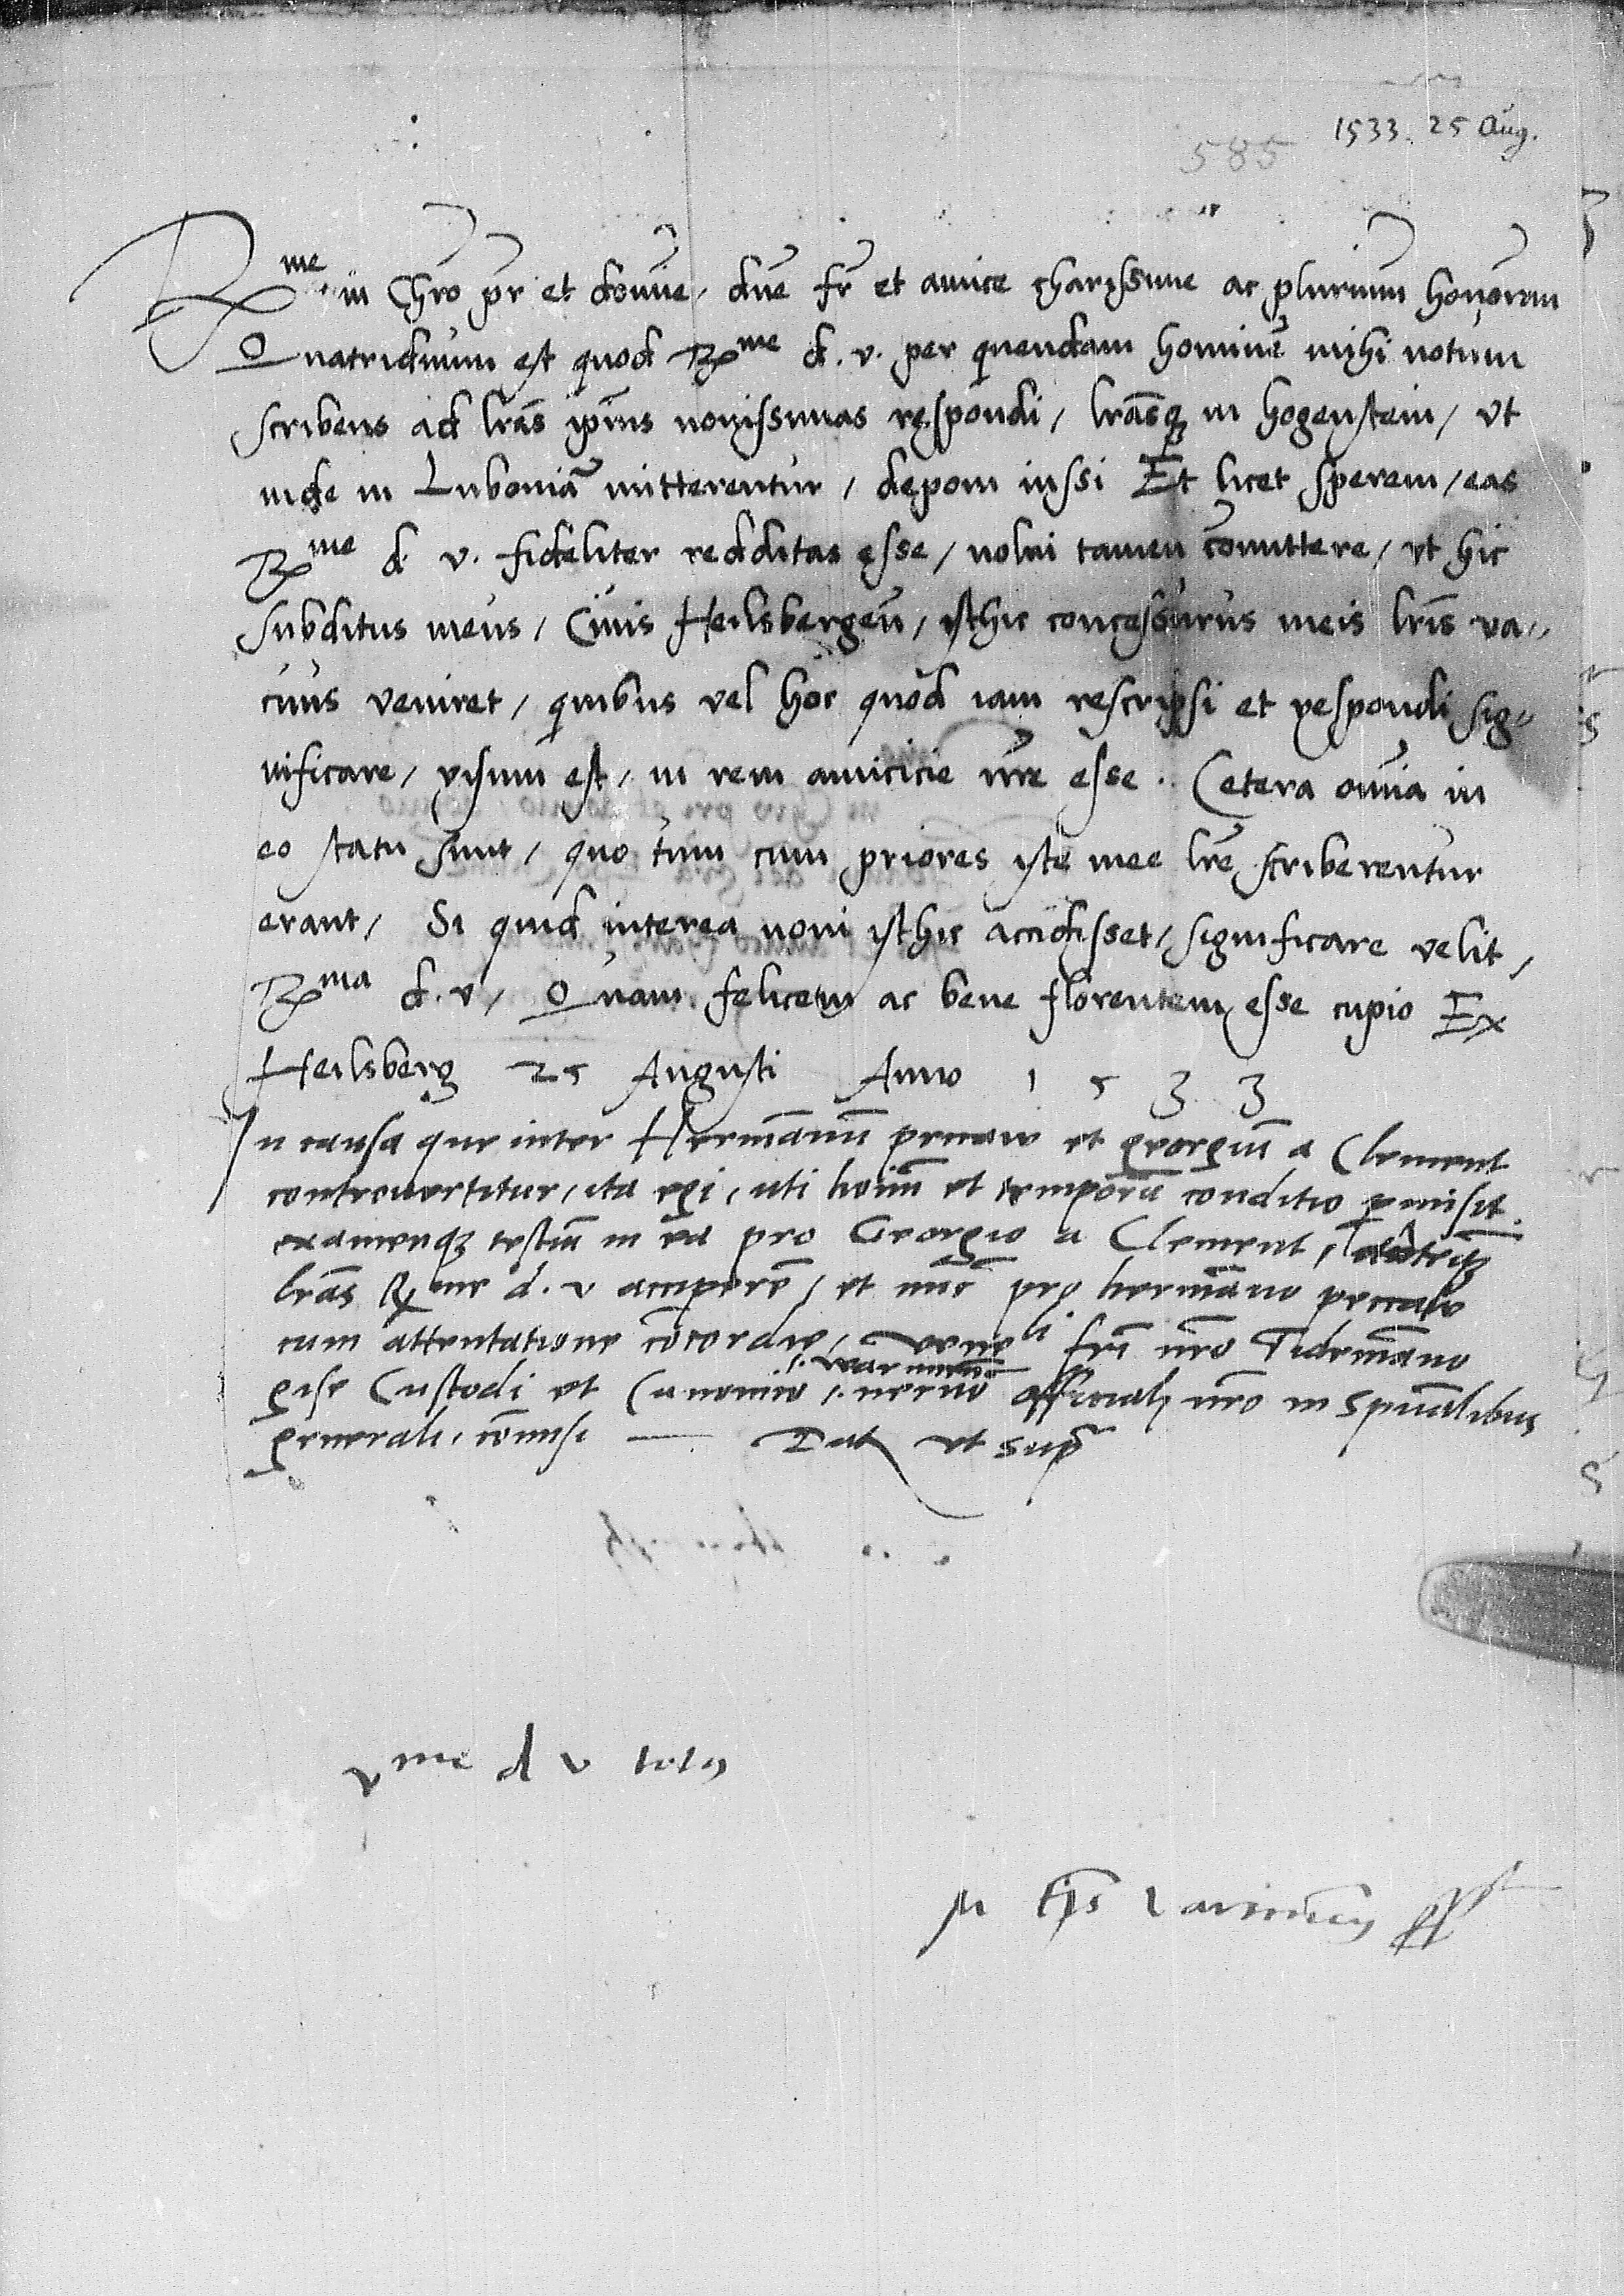 1533. 25 Aug.
585
Rme in Chro pr et domine, dne fr et amice charissime ac plurimum honoran
Quatriduum est quod Rme d. v. per quendam hominē mihi notum
scribens ad lras ipius novissimas respondi, lrasq in hogenstein, ut
inde in Luboniā mitterentur, deponi iussi Et licet sperem, eas
Rme d. v. fideliter redditas esse, nolui tamen comittere, ut hic
subditus meus, Civis Heilsbergen, isthic concessurus meis lris va,,
cuus veniret, quibus vel hoc quod iam rescripsi et respondi sig,,
nificare, visum est, in rem amicicie nre esse. Cetera omnia in
eo statu sunt, quo tum cum priores iste mee lre scriberentur
erant, Si quid interea novi isthic accidisset, significare velit,
Rma d. v, Quam felicem ac bene florentem esse cupio Ex
Heilsberg 25 Augusti Anno 1533
In causa que inter Hermanū et georgiū a Clement
controvertitur, ita egi, uti hoim et temporū conditio pmisit.
examenq testiū in ea pro Georgio a Clement,
lras Rme d. v acciperē, et nūc pro hermāno
cum attentatione cōcordie, veneli fri nro Tidemāno
gise Custodi et Canonico officiali nro in spūalibus
warmien
generali, cōmisi — Dat ut supra
vme d v totus
M Eps Varmien